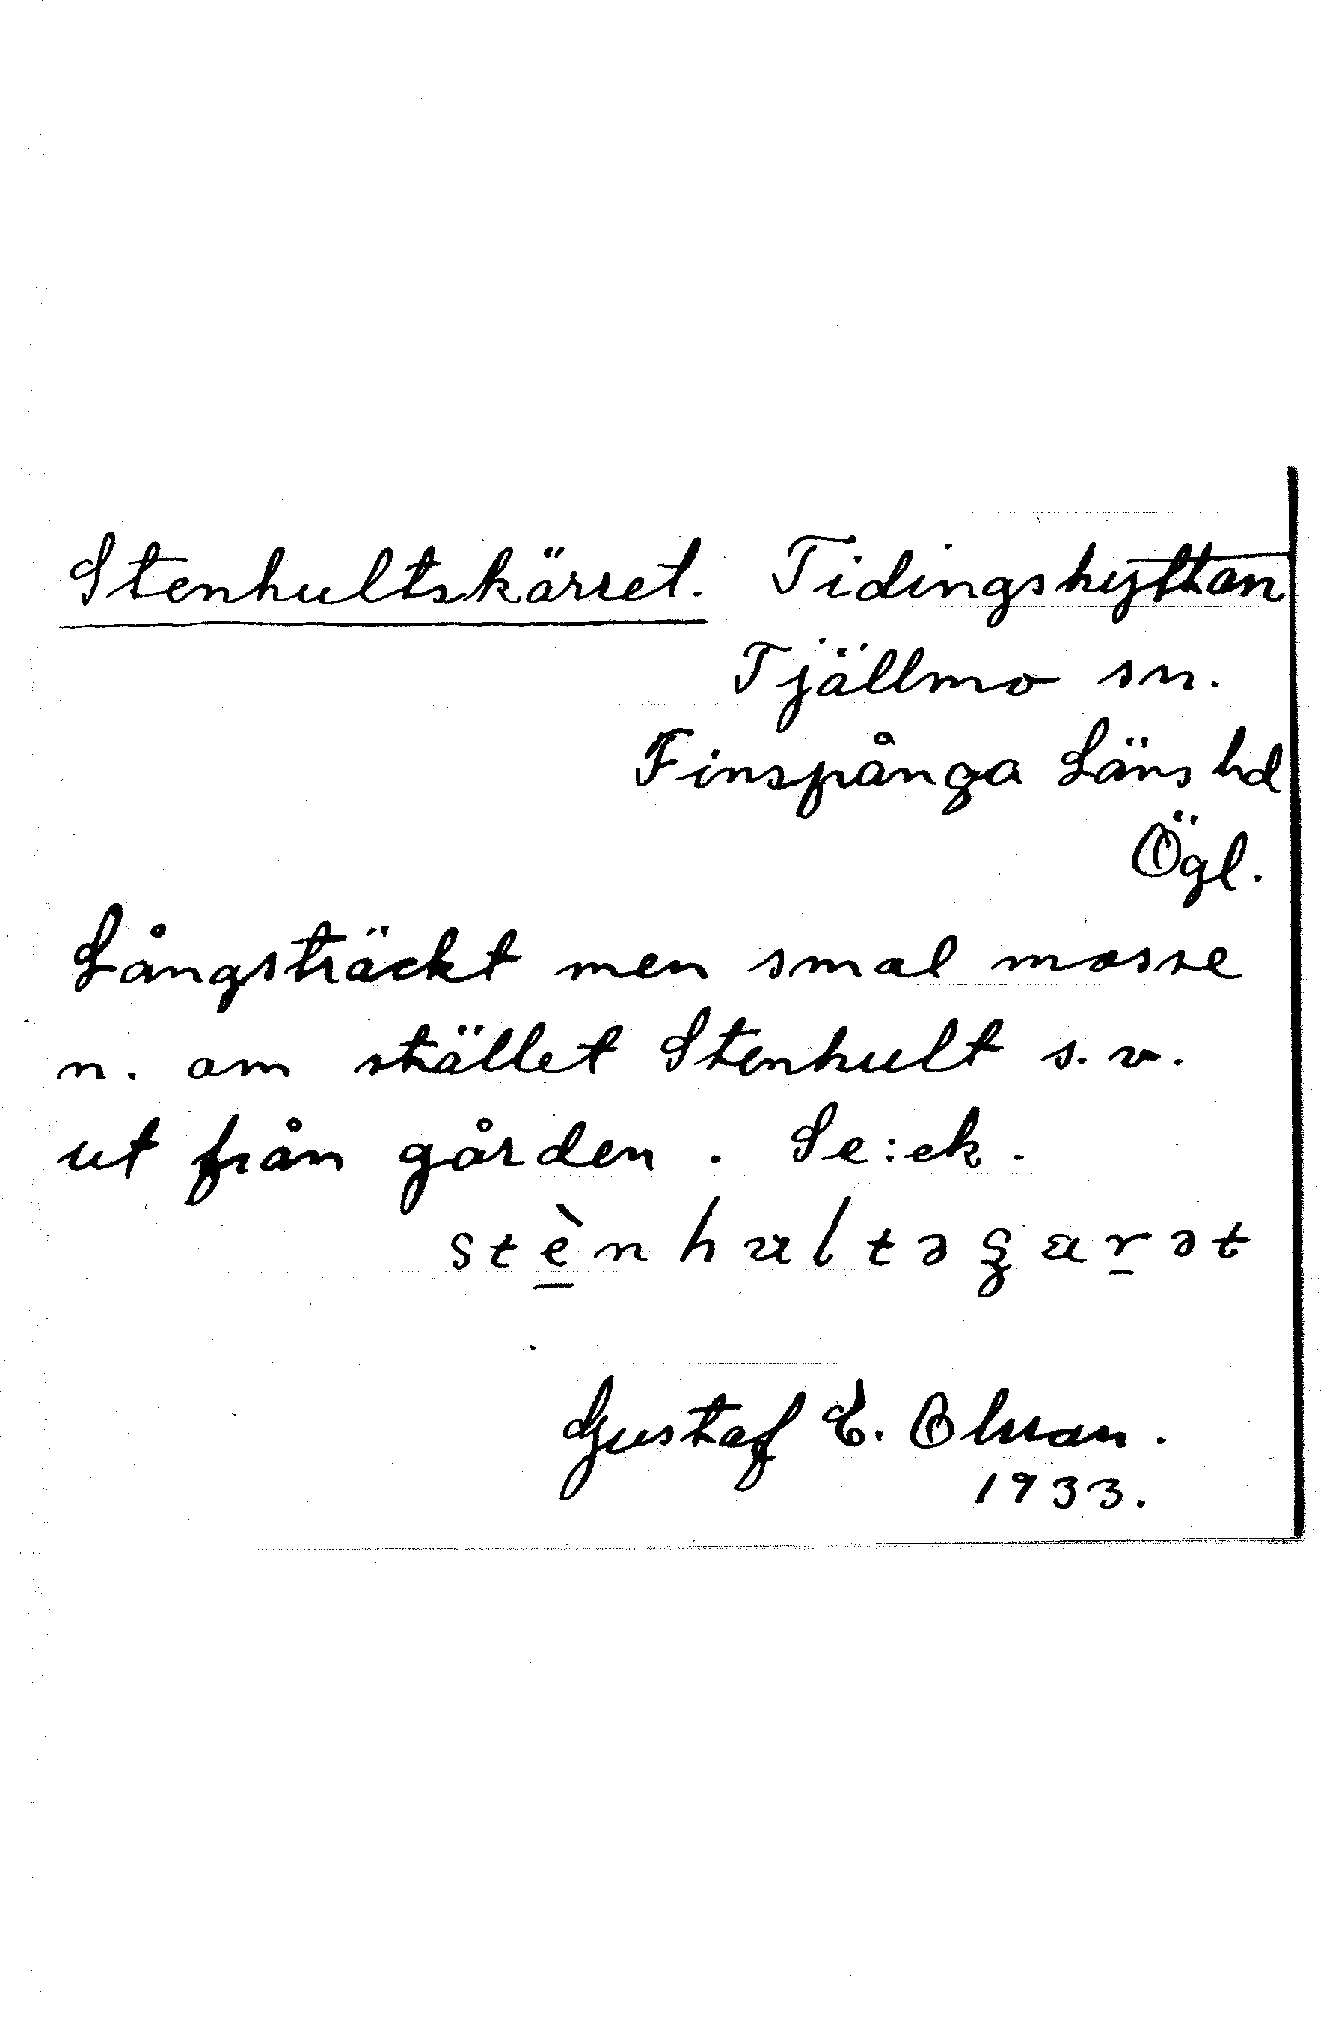 Stenhultskärret. Tidingshyttan
Tjällmo sn.
Finspånga Läns hd
Ögl.
Långsträckt men smal mosse
n. om stället Stenhult s.v.
ut från gården. Se: ek.
Gustaf E. Olsson.
1933.